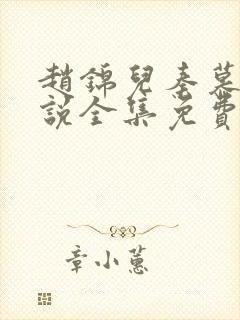 趙錦兒秦慕
說全集免費
章小蕙